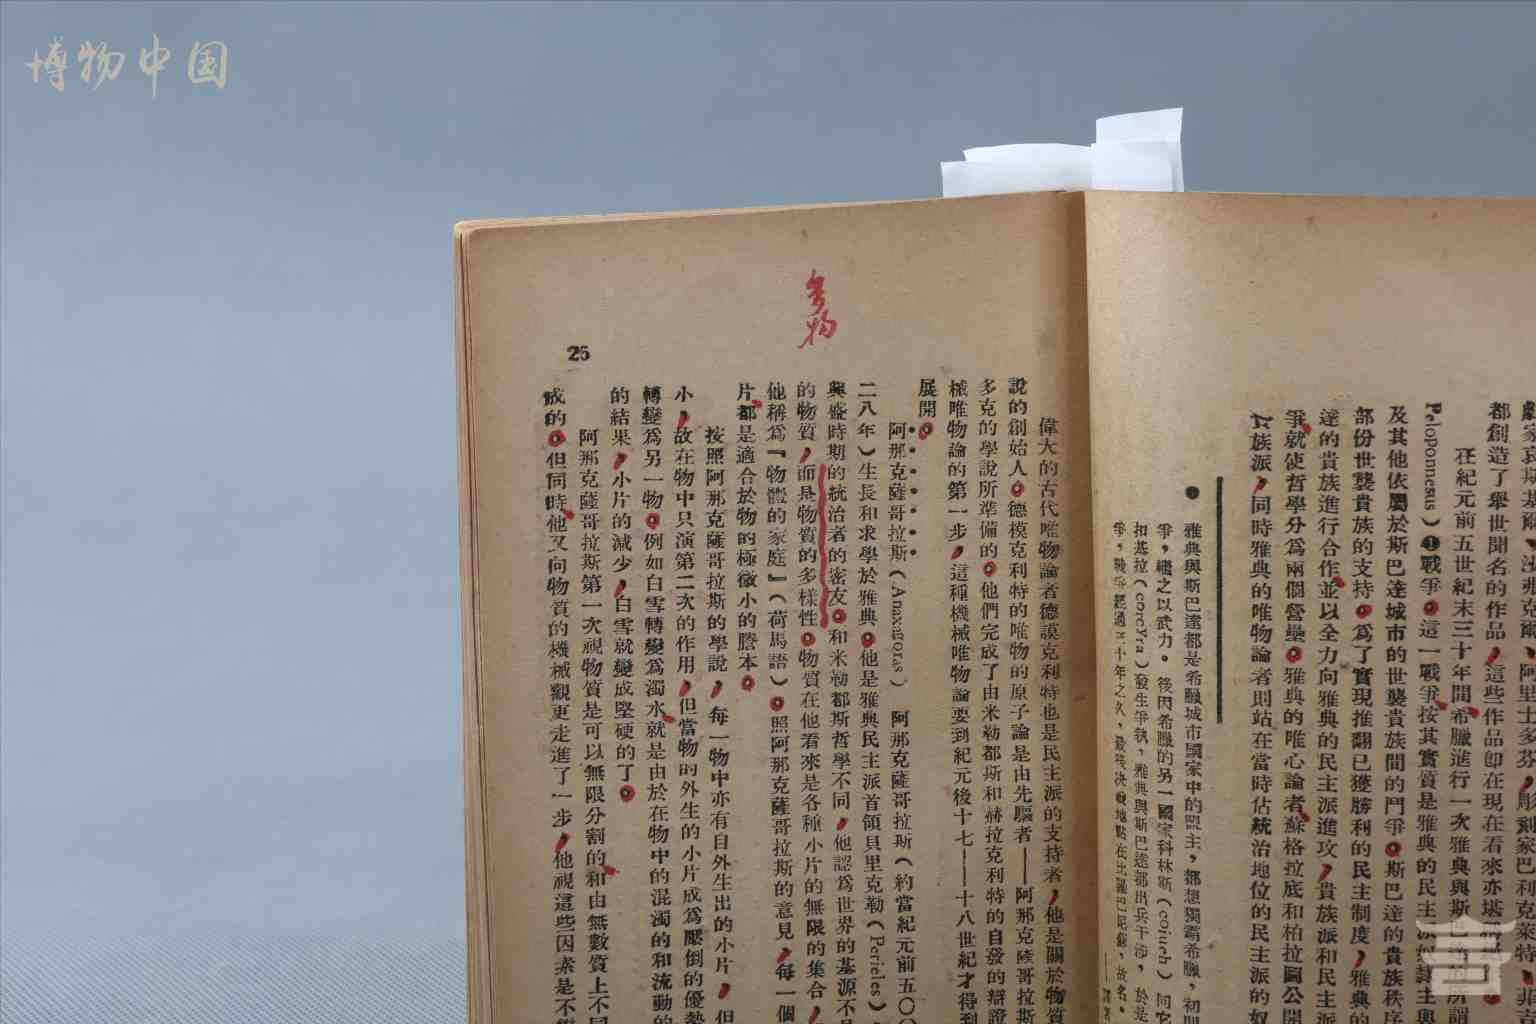 博物中国
都創造了舉世聞名的作品，這些作品卽在現在看來亦
在紀元前五世紀末三十年間希臘進行一次雅典與斯
Peloponnesus）❶戰爭。這一戰爭按其實質是雅典的民主派
及其他依屬於斯巴達城市的世襲貴族間的鬥爭。斯巴達的貴族秩序
部份世襲貴族的支持。爲了實現推翻已獲勝利的民主制度，雅典的
達的貴族進行合作並以全力向雅典的民主派進攻，貴族派和民主派
爭就使哲學分爲兩個營壘。雅典的唯心論者蘇格拉底和柏拉圖公開
貴族派，同時雅典的唯物論者則站在當時佔統治地位的民主派的奴
● 雅典與斯巴達都是希臘城市國家中的盟主，都想獨霸希臘，初期
爭，繼之以武力。後因希臘的另一國家科林斯
發生爭執，雅典與斯巴達都出兵干涉，於是
偉大的古代唯物論者德謨克利特也是民主派的支持者，他是關於物質
說的創始人。德模克利特的唯物的原子論是由先驅者——阿那克薩哥拉斯
多克的學說所準備的。他們完成了由米勒都斯和赫拉克利特的自發的辯證
械唯物論的第一步，這種機械唯物論要到紀元後十七——十八世紀才得到
展開。
阿那克薩哥拉斯（Anaxagoras） 阿那克薩哥拉斯（約當紀元前五〇〇
二八年）生長和求學於雅典。他是雅典民主派首領貝里克勒（Pericles）
興盛時期的統治者的密友。和米勒都斯哲學不同，他認爲世界的基源不是
的物質，而是物質的多樣性。物質在他看來是各種小片的無限的集合，
他稱爲『物體的家庭』（荷馬語）。照阿那克薩哥拉斯的意見，每一個
片都是適合於物的極微小的謄本。
按照阿那克薩哥拉斯的學說，每一物中亦有自外生出的小片，但
小，故在物中只演第二次的作用，但當物的外生的小片成爲壓倒的優勢
轉變爲另一物。例如白雪轉變爲濁水就是由於在物中的混濁的和流動的
的結果，小片的減少，白雪就變成堅硬的了。
阿那克薩哥拉斯第一次視物質是可以無限分割的和由無數質上不同
成的。但同時他又向物質的機械觀更走進了一步，他視這些因素是不
26